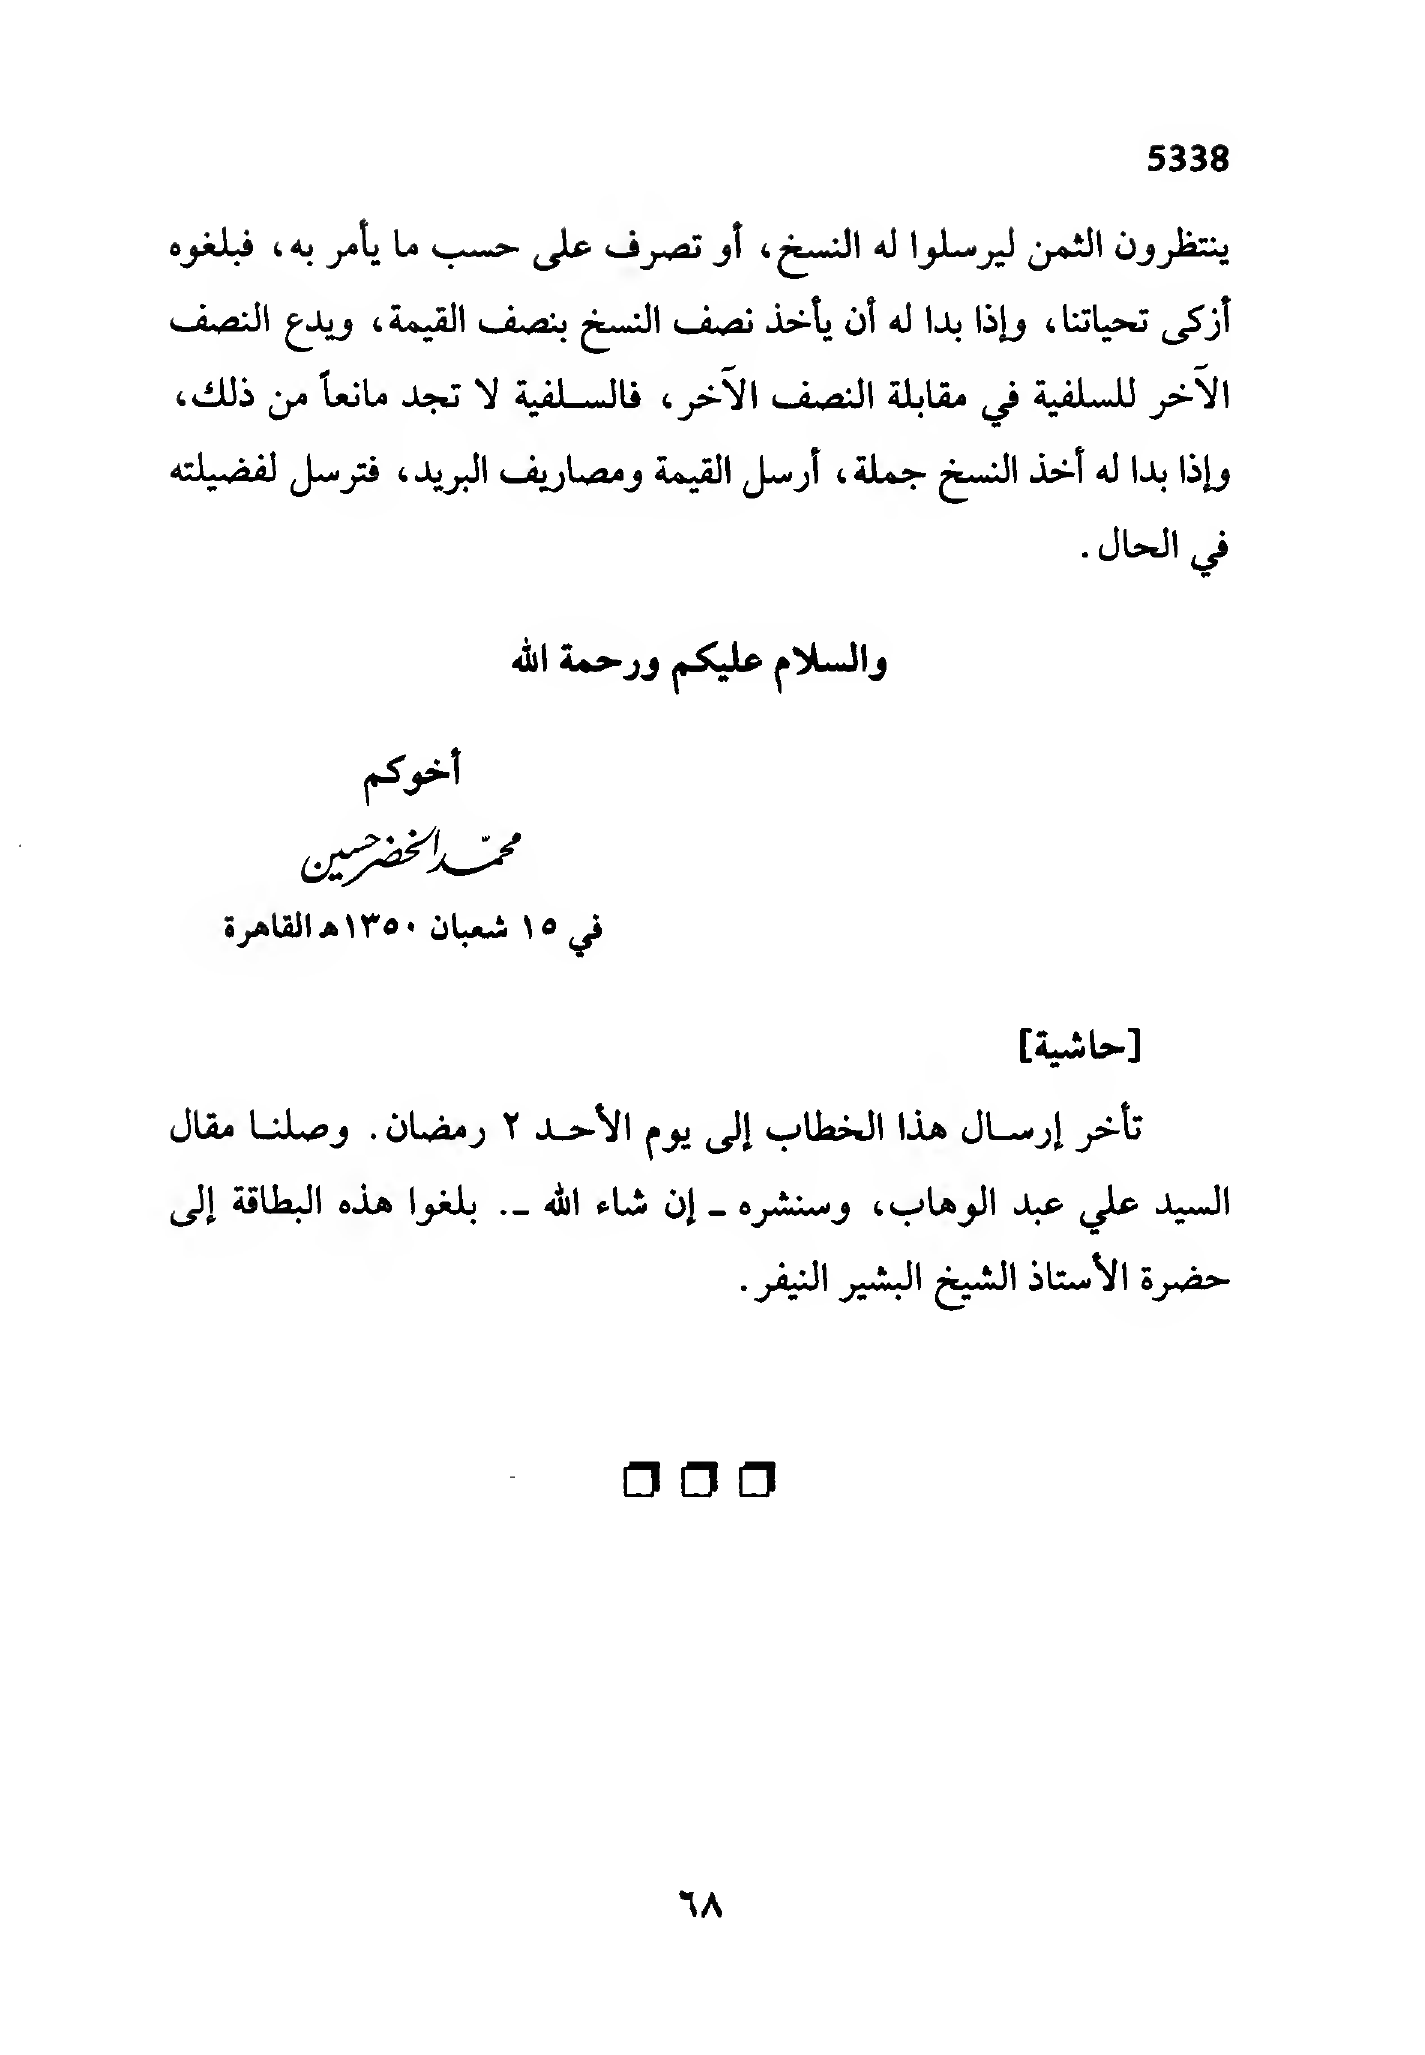 5338
ينتظرون الثمن ليرسلوا له النسخ، أو تصرف على حسب ما يأمر به، فبلغوه
أزكى تحياتنا، وإذا بدا له أن يأخذ نصف النسخ بنصف القيمة، ويدع النصف
الآخر للسلفية في مقابلة النصف الآخر، فالسلفية لا تجد مانعاً من ذلك،
وإذا بدا له أخذ النسخ جملة، أرسل القيمة ومصاريف البريد، فترسل لفضيلته
في الحال.
والسلام عليكم ورحمة الله
أخوكم
محمّد الخضر حسين
في ١٥ شعبان ١٣٥٠هـ القاهرة
[حاشية]
تأخر إرسال هذا الخطاب إلى يوم الأحد ٢ رمضان. وصلنا مقال
السيد علي عبد الوهاب، وسنشره ـ إن شاء الله ـ. بلغوا هذه البطاقة إلى
حضرة الأستاذ الشيخ البشير النيفر.
٦٨